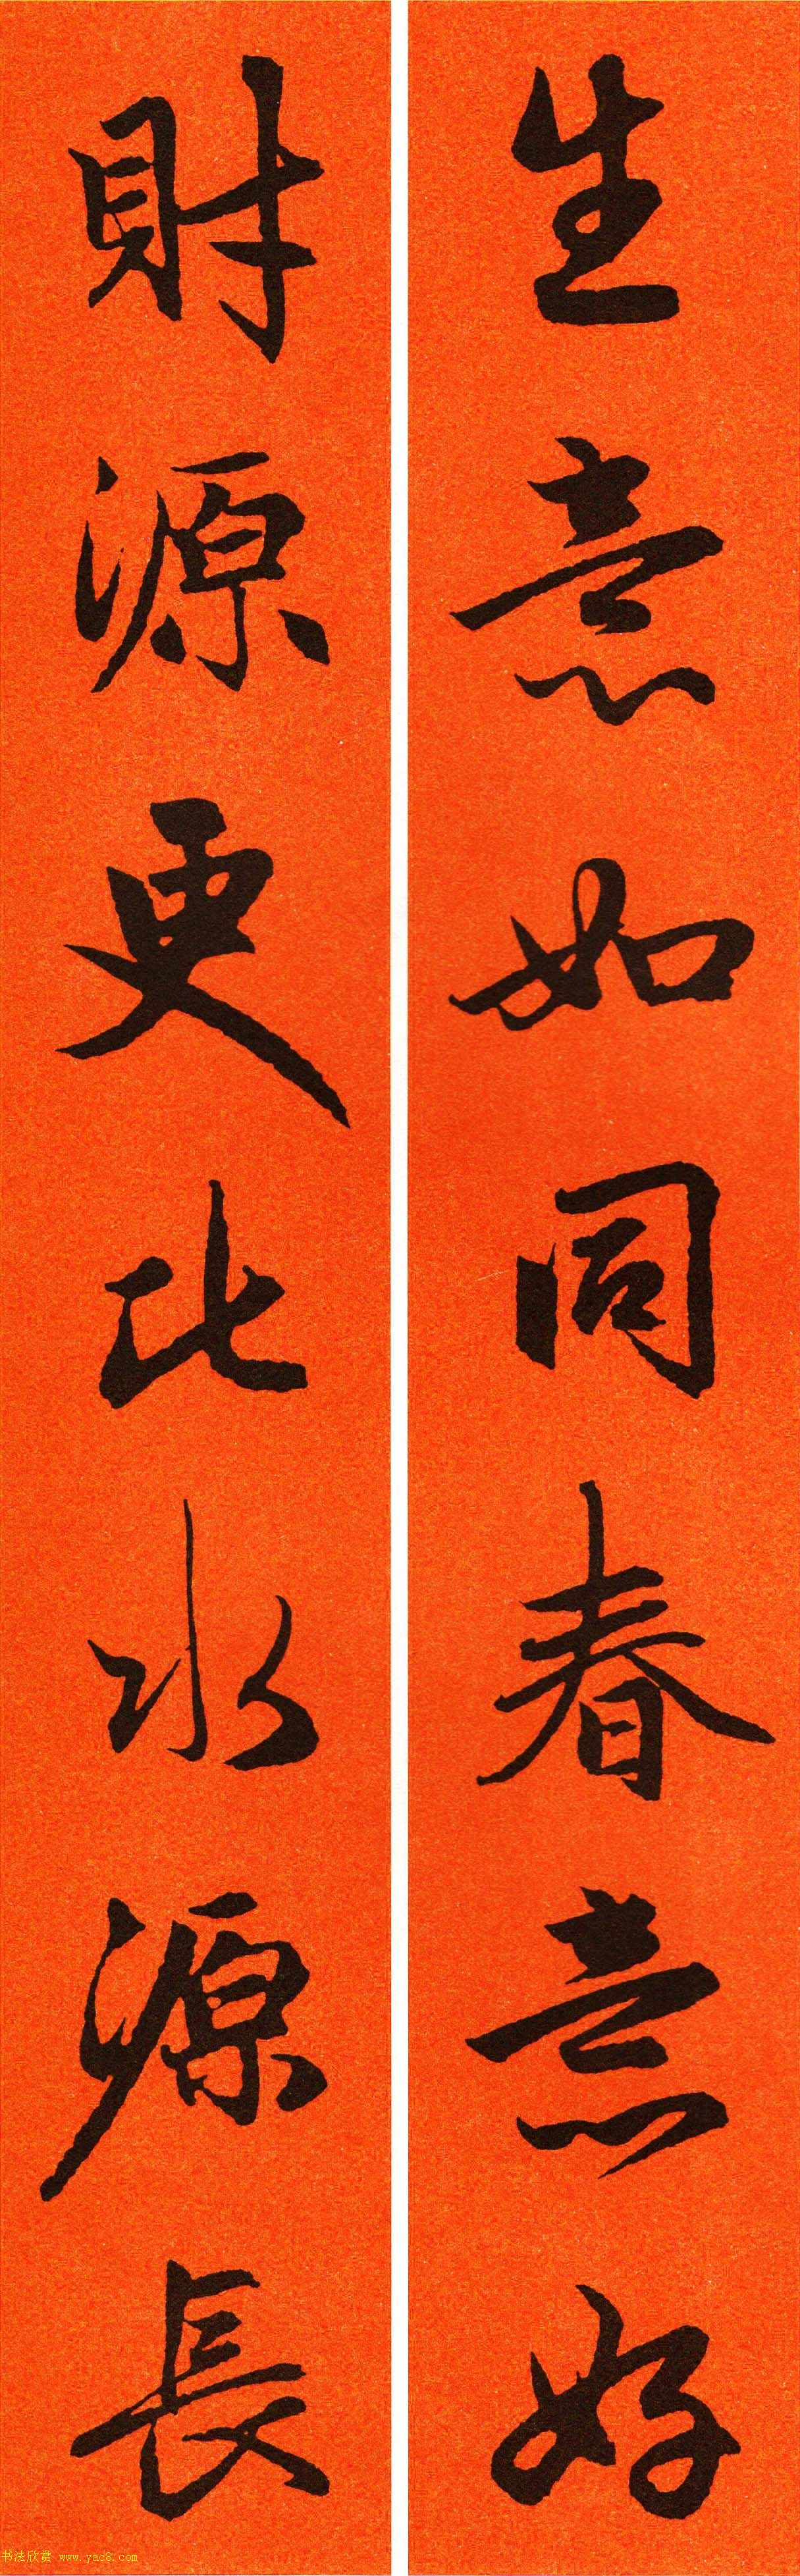 生意如同春意好
財源更比水源長
书法欣赏 www.yac8.com